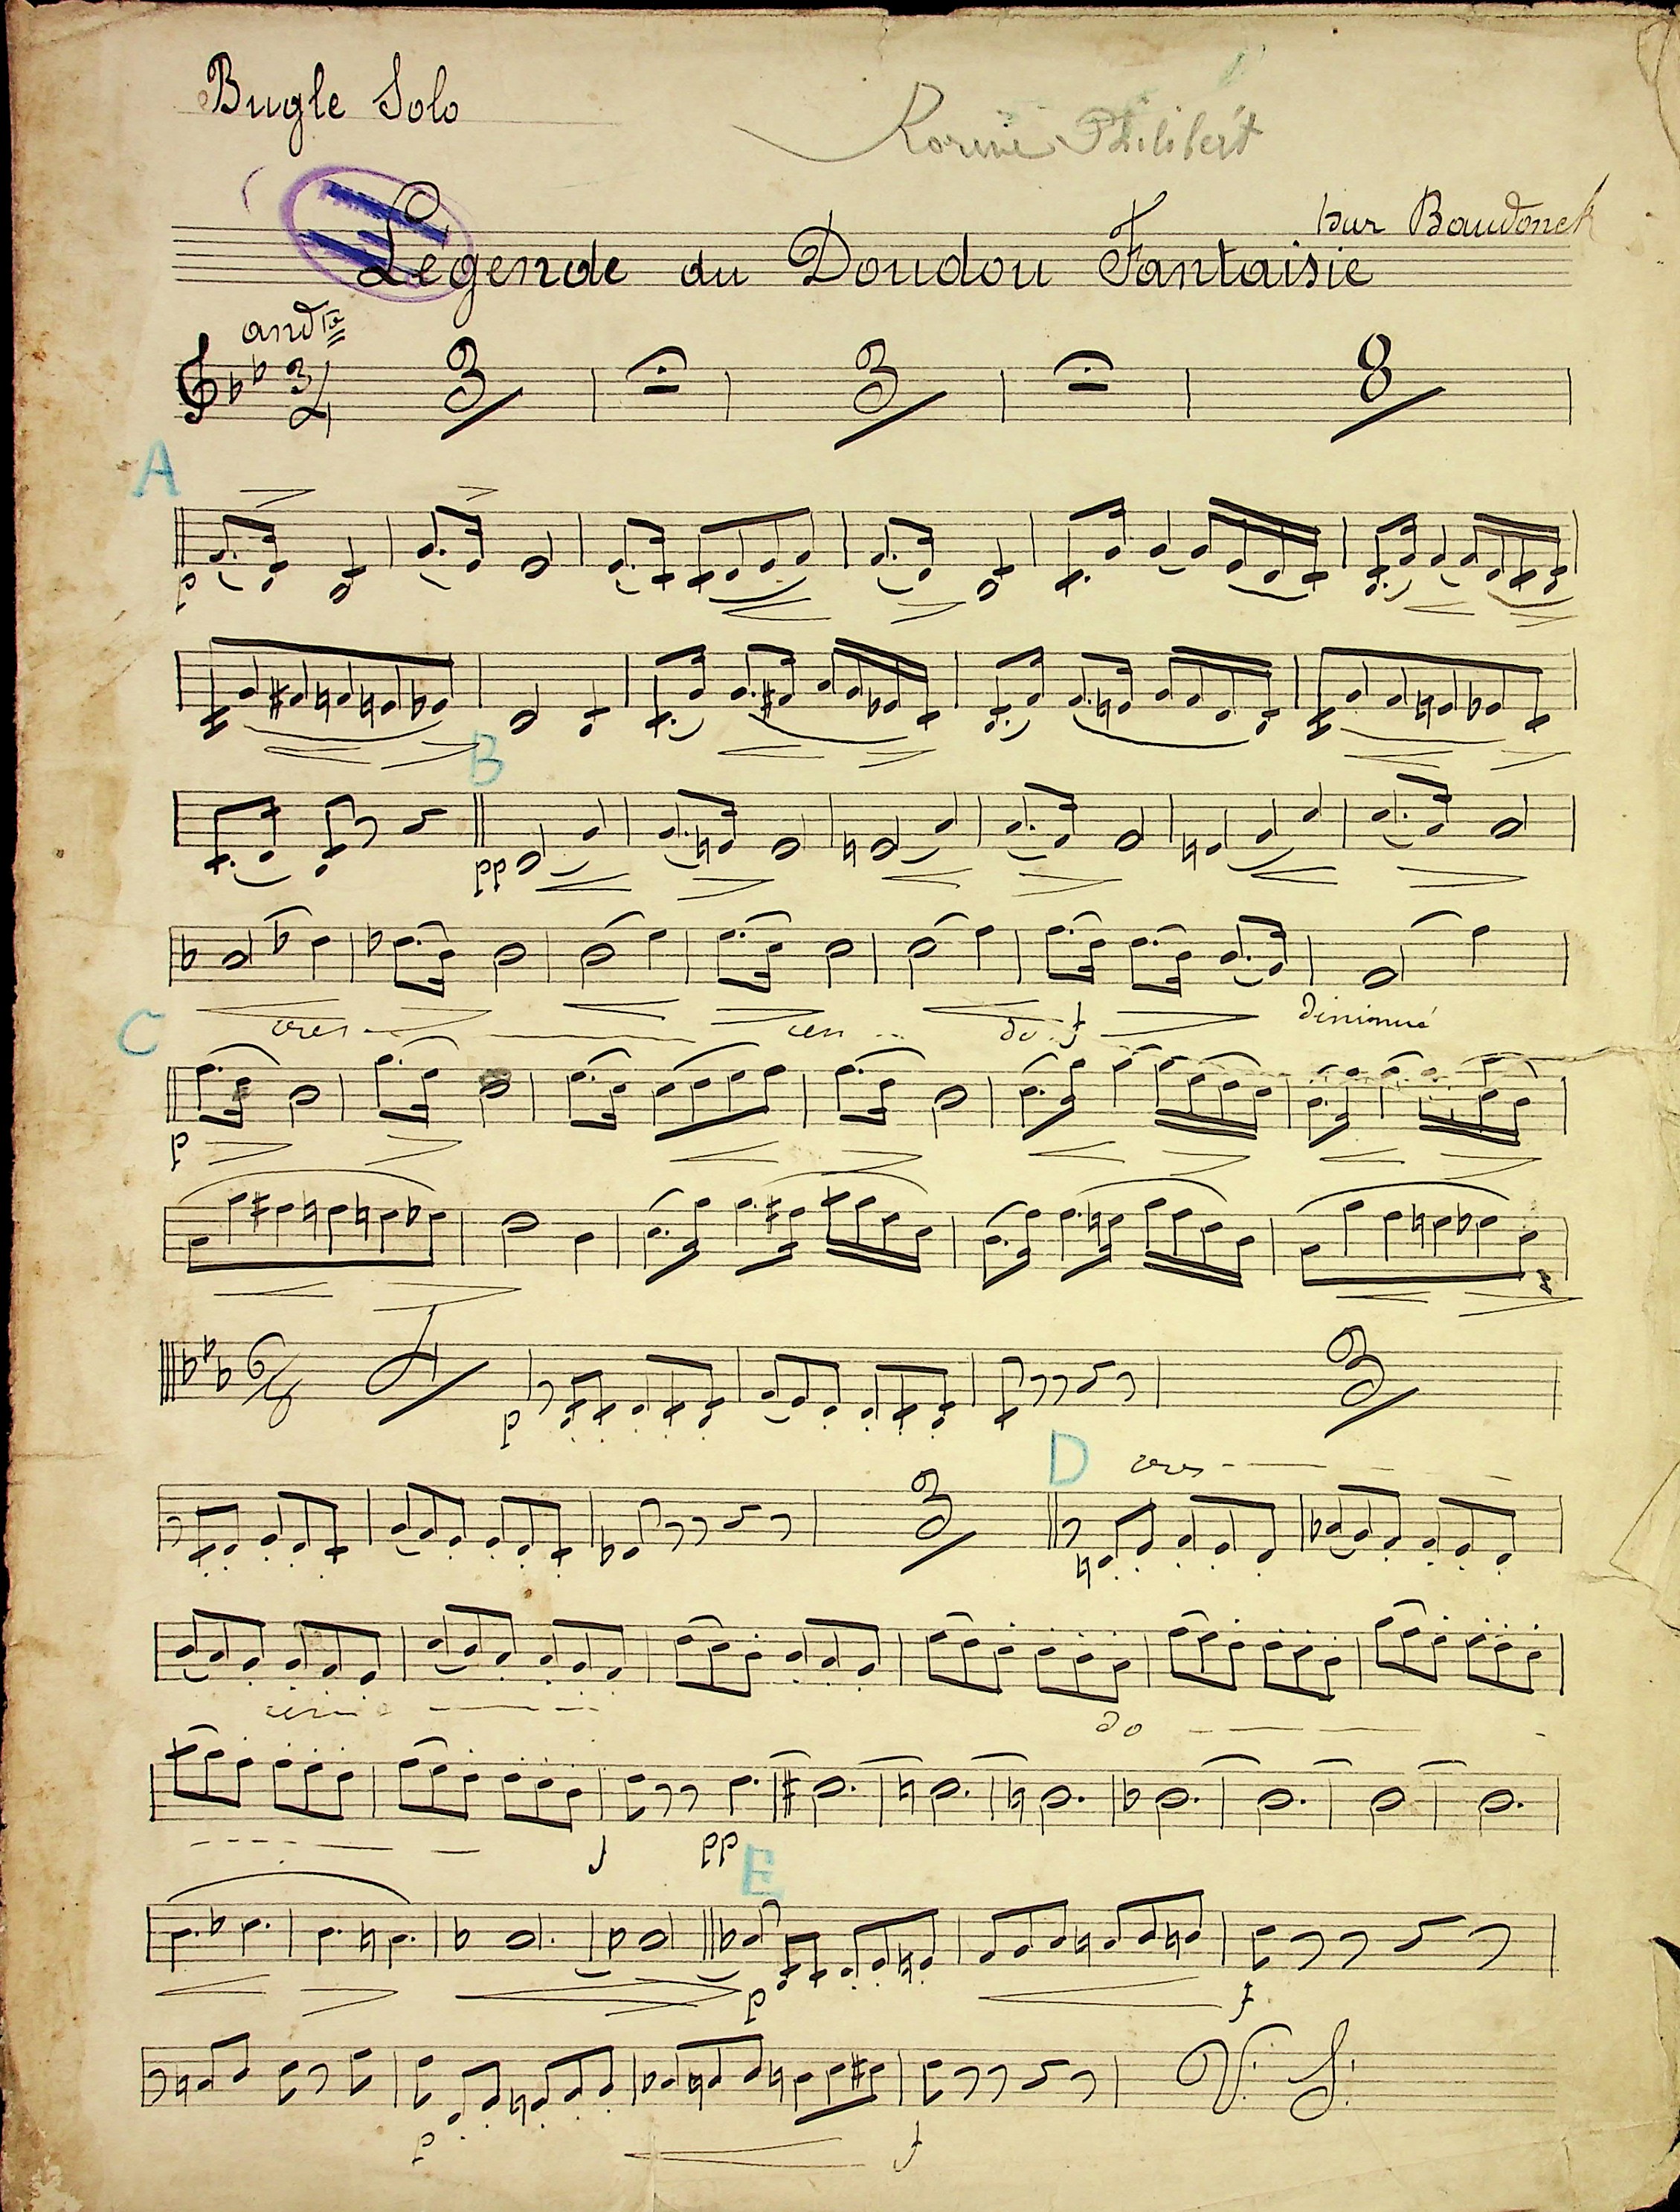 Bugle Solo
Philibert
Légende du Doudou Fantaisie
Baudonck
andte
3/4
3
3
8
A
p
B
pp
cres - cen - do f diminué
C
p
6/8
2
p
3
3
D
cres
cen
do
f
pp
E
p
f
p
f
V. S.